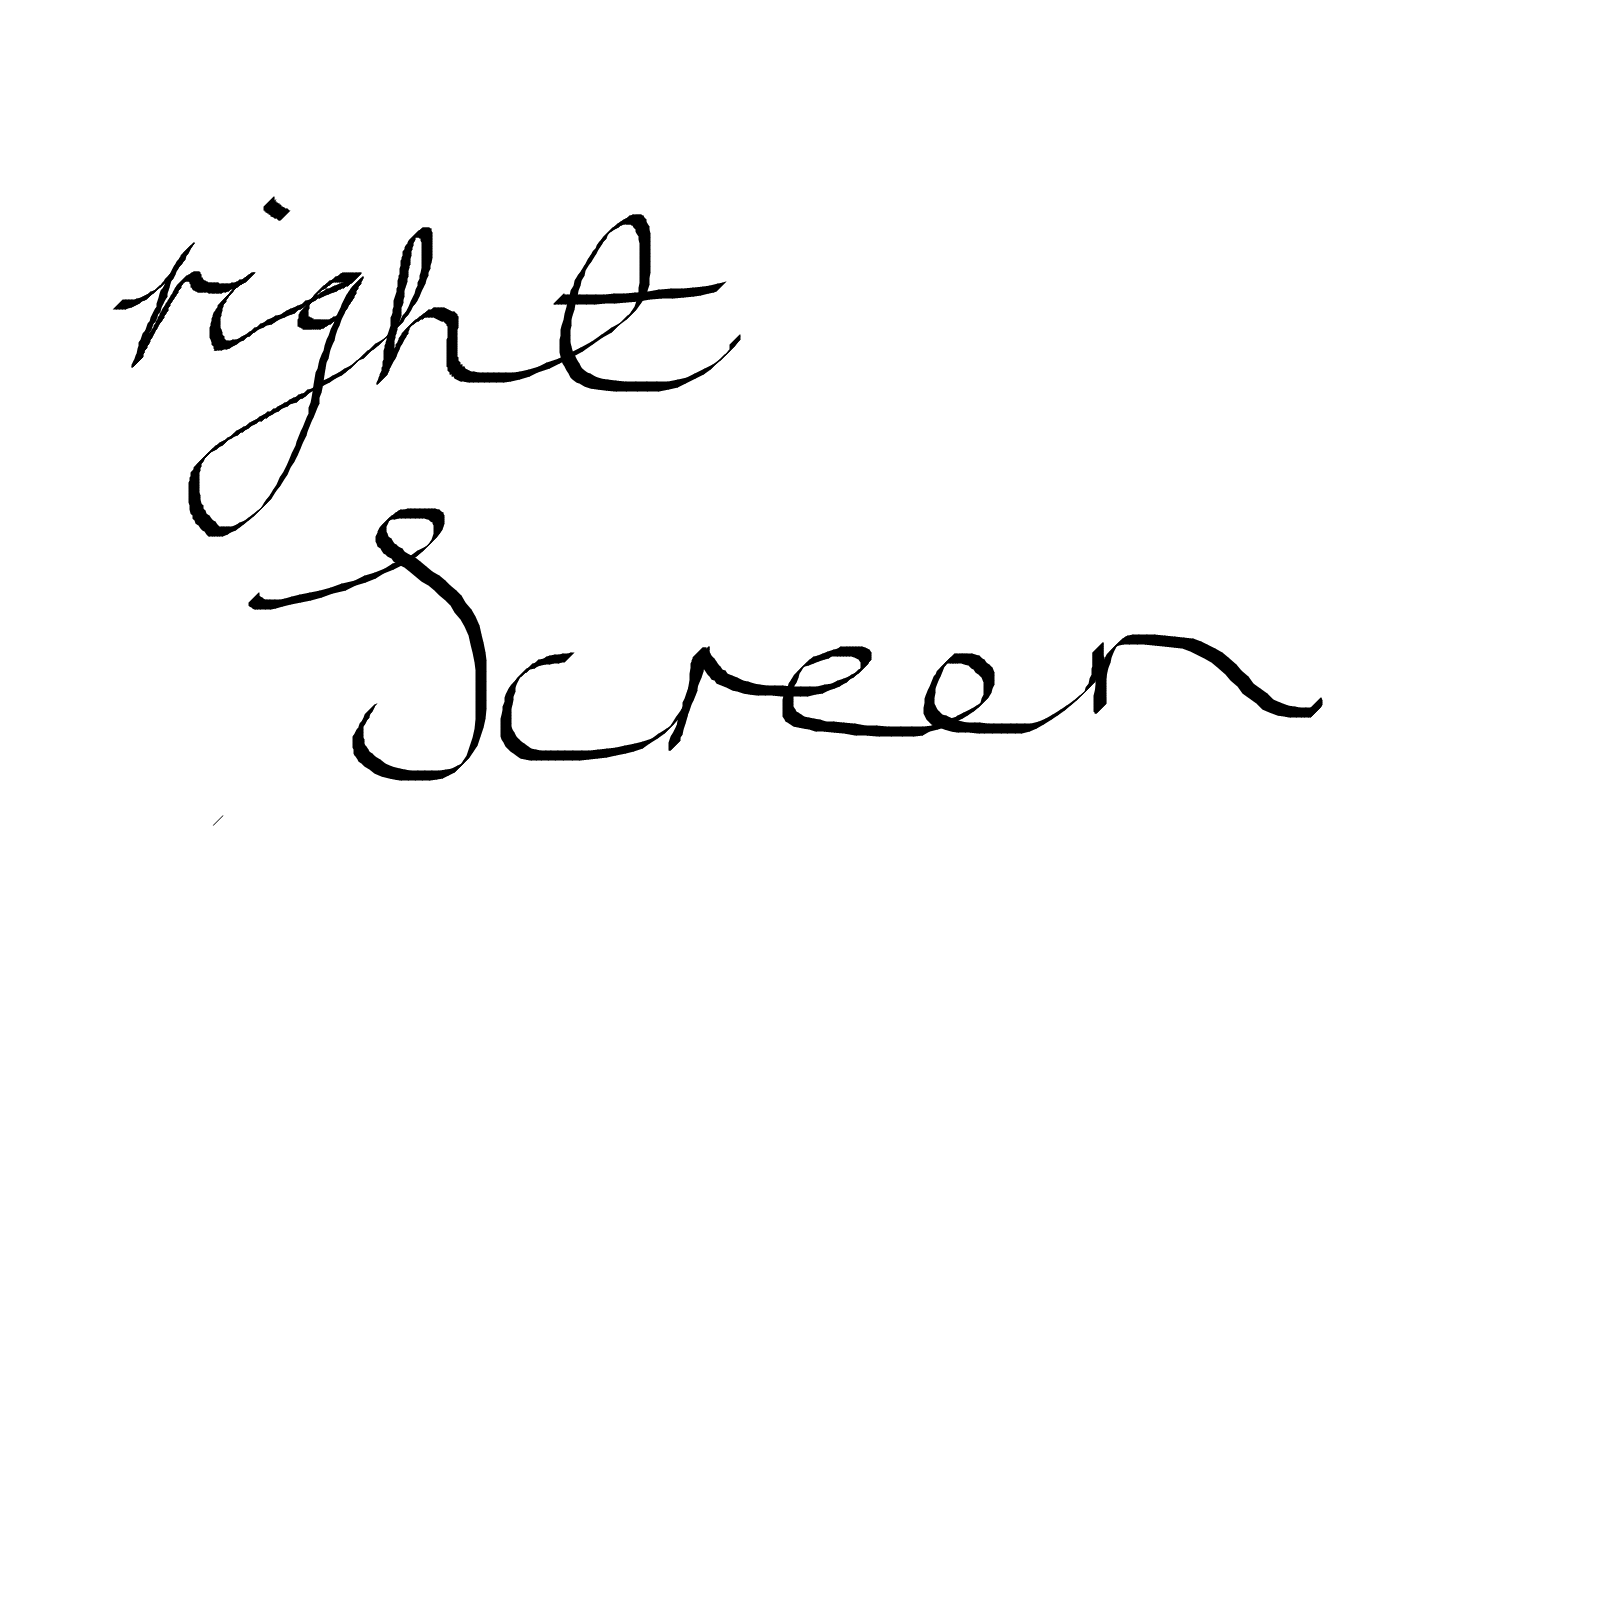 right
Screen